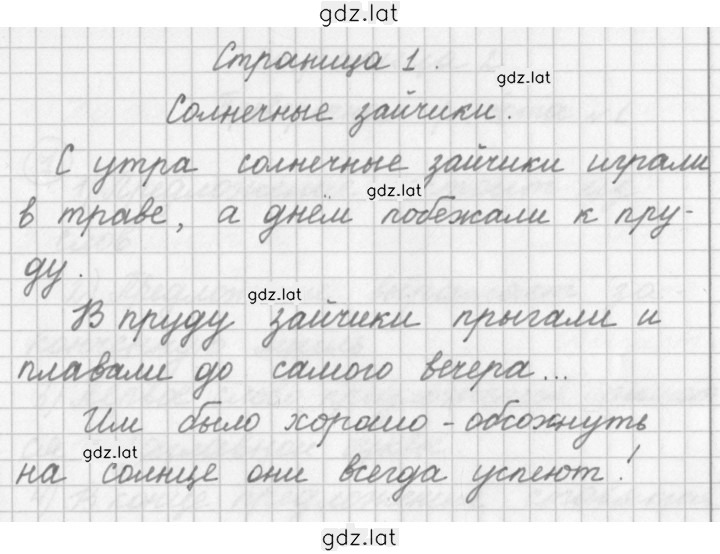 gdz.lat
Страница 1.
gdz.lat
Солнечные зайчики.
С утра солнечные зайчики играли
gdz.lat
в траве, а днём побежали к пру-
ду.
gdz.lat
В пруду зайчики прыгали и
плавали до самого вечера...
Им было хорошо - обсохнуть
gdz.lat
на солнце они всегда успеют!
gdz.lat